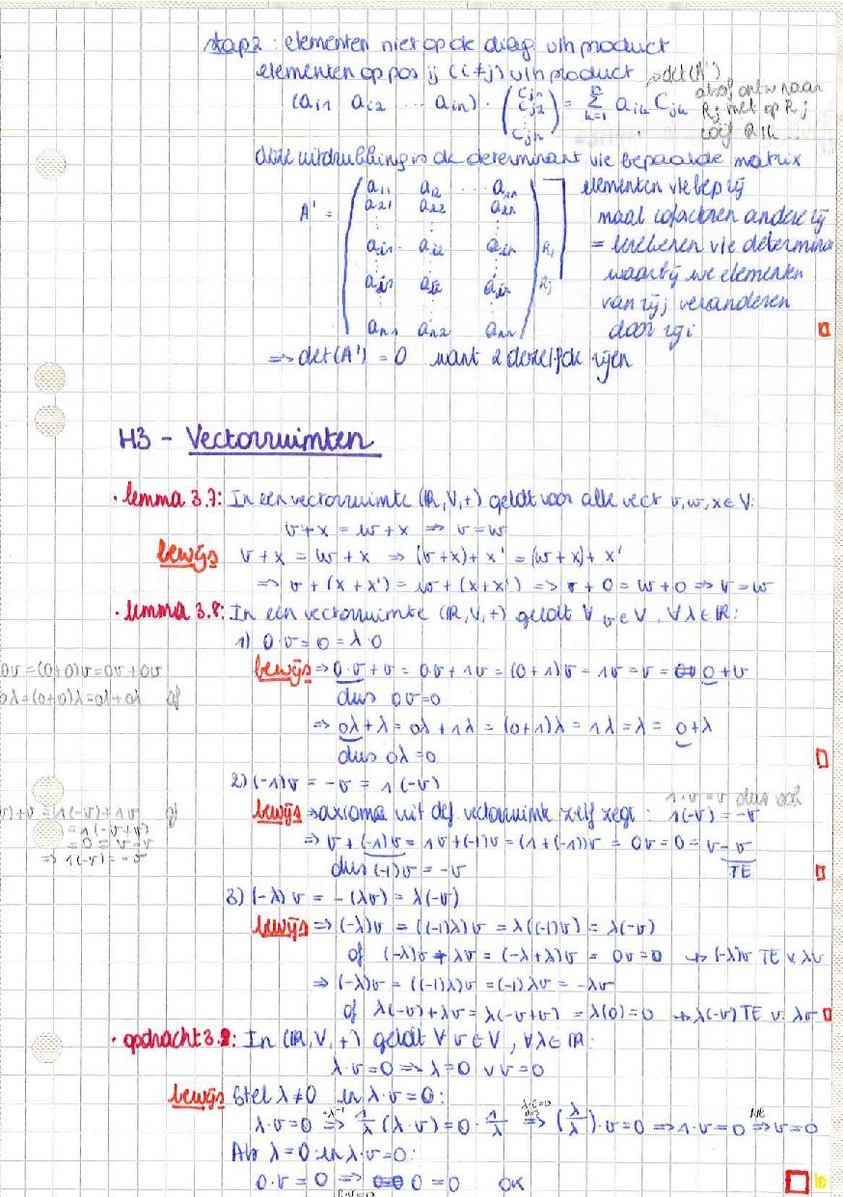 stap 2 : elementen niet op de diag v/h product
elementen op pos ij (i≠j) v/h product → det(A')
(a_i1 a_i2 ... a_in) · (C_j1 C_j2 ⋮ C_jn) = Σ_{k=1}^n a_ik C_jk
R_j met op R_j
deze uitdrukking is de determinant v/e bepaalde matrix
A' = ( a_11 a_12 ... a_1n
a_21 a_22 a_2n
⋮ ⋮ ⋮
a_i1 a_i2 a_in R_i
⋮ ⋮ ⋮
a_i1 a_i2 a_in R_j
⋮ ⋮ ⋮
a_n1 a_n2 a_nn )
elementen v/e bep rij
maal cofactoren andere rij
= berekenen v/e determina
waarbij we elementen
van rij j veranderen
door rij i
=> det(A') = 0 want 2 dezelfde rijen
H3 - Vectorruimten
• lemma 3.7: In een vectorruimte (ℝ,V,+) geldt voor alle vect v,w,x ∈ V:
v+x = w+x => v=w
bewijs v+x = w+x => (v+x)+x' = (w+x)+x'
=> v+(x+x') = w+(x+x') => v+0 = w+0 => v=w
• lemma 3.8: In een vectorruimte (ℝ,V,+) geldt ∀ v∈V, ∀λ∈ℝ:
1) 0·v = 0 = λ·0
0v = (0+0)v = 0v+0v
bewijs => 0·v + v = 0v + 1v = (0+1)v = 1v = v = 0+v
0λ = (0+0)λ = 0λ+0λ of
dus 0v=0
=> 0λ+λ = 0λ+1λ = (0+1)λ = 1λ = λ = 0+λ
dus 0λ=0
2) (-1)v = -v = 1(-v)
1·v = v dus ook
)+v = 1(-v)+1v of
= 1(-v+v)
= 0 = v-v
=> 1(-v) = -v
bewijs → axioma uit def. vectorruimte zelf zegt : 1(-v) = -v
=> v+(-1)v = 1v+(-1)v = (1+(-1))v = 0v = 0 = v-v
dus (-1)v = -v TE
3) (-λ)v = -(λv) = λ(-v)
bewijs => (-λ)v = ((-1)λ)v = λ((-1)v) = λ(-v)
of (-λ)v + λv = (-λ+λ)v = 0v = 0 → (-λ)v TE v λv
=> (-λ)v = ((-1)λ)v = (-1)λv = -λv
of λ(-v)+λv = λ(-v+v) = λ(0) = 0 → λ(-v) TE v. λv
• opdracht 3.9: In (ℝ,V,+) geldt ∀ v∈V, ∀λ∈ℝ:
λ·v=0 => λ=0 ∨ v=0
bewijs Stel λ≠0 en λ·v=0:
λ·v=0 => 1/λ (λ·v) = 0·1/λ => (λ/λ)·v=0 => 1·v=0 => v=0
Als λ=0 en λ·v=0:
0·v = 0 => 0=0 OK